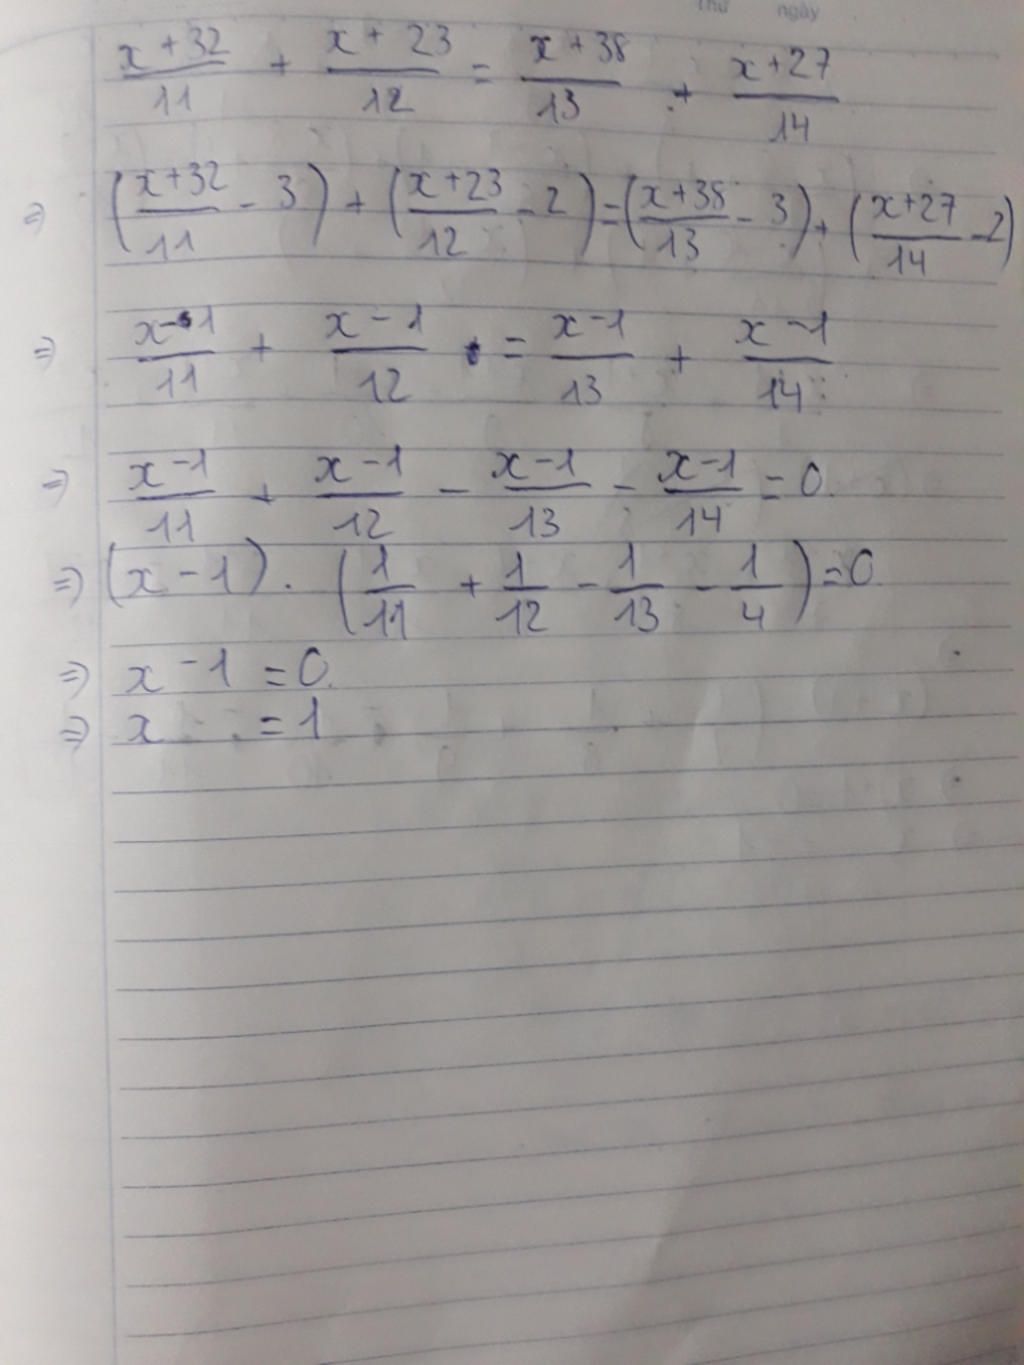 Thứ ngày
x + 32/11 + x + 23/12 = x + 38/13 + x + 27/14
=> (x + 32/11 - 3) + (x + 23/12 - 2) = (x + 38/13 - 3) + (x + 27/14 - 2)
=> x - 1/11 + x - 1/12 = x - 1/13 + x - 1/14
=> x - 1/11 + x - 1/12 - x - 1/13 - x - 1/14 = 0.
=> (x - 1) . (1/11 + 1/12 - 1/13 - 1/4) = 0.
=> x - 1 = 0.
=> x = 1